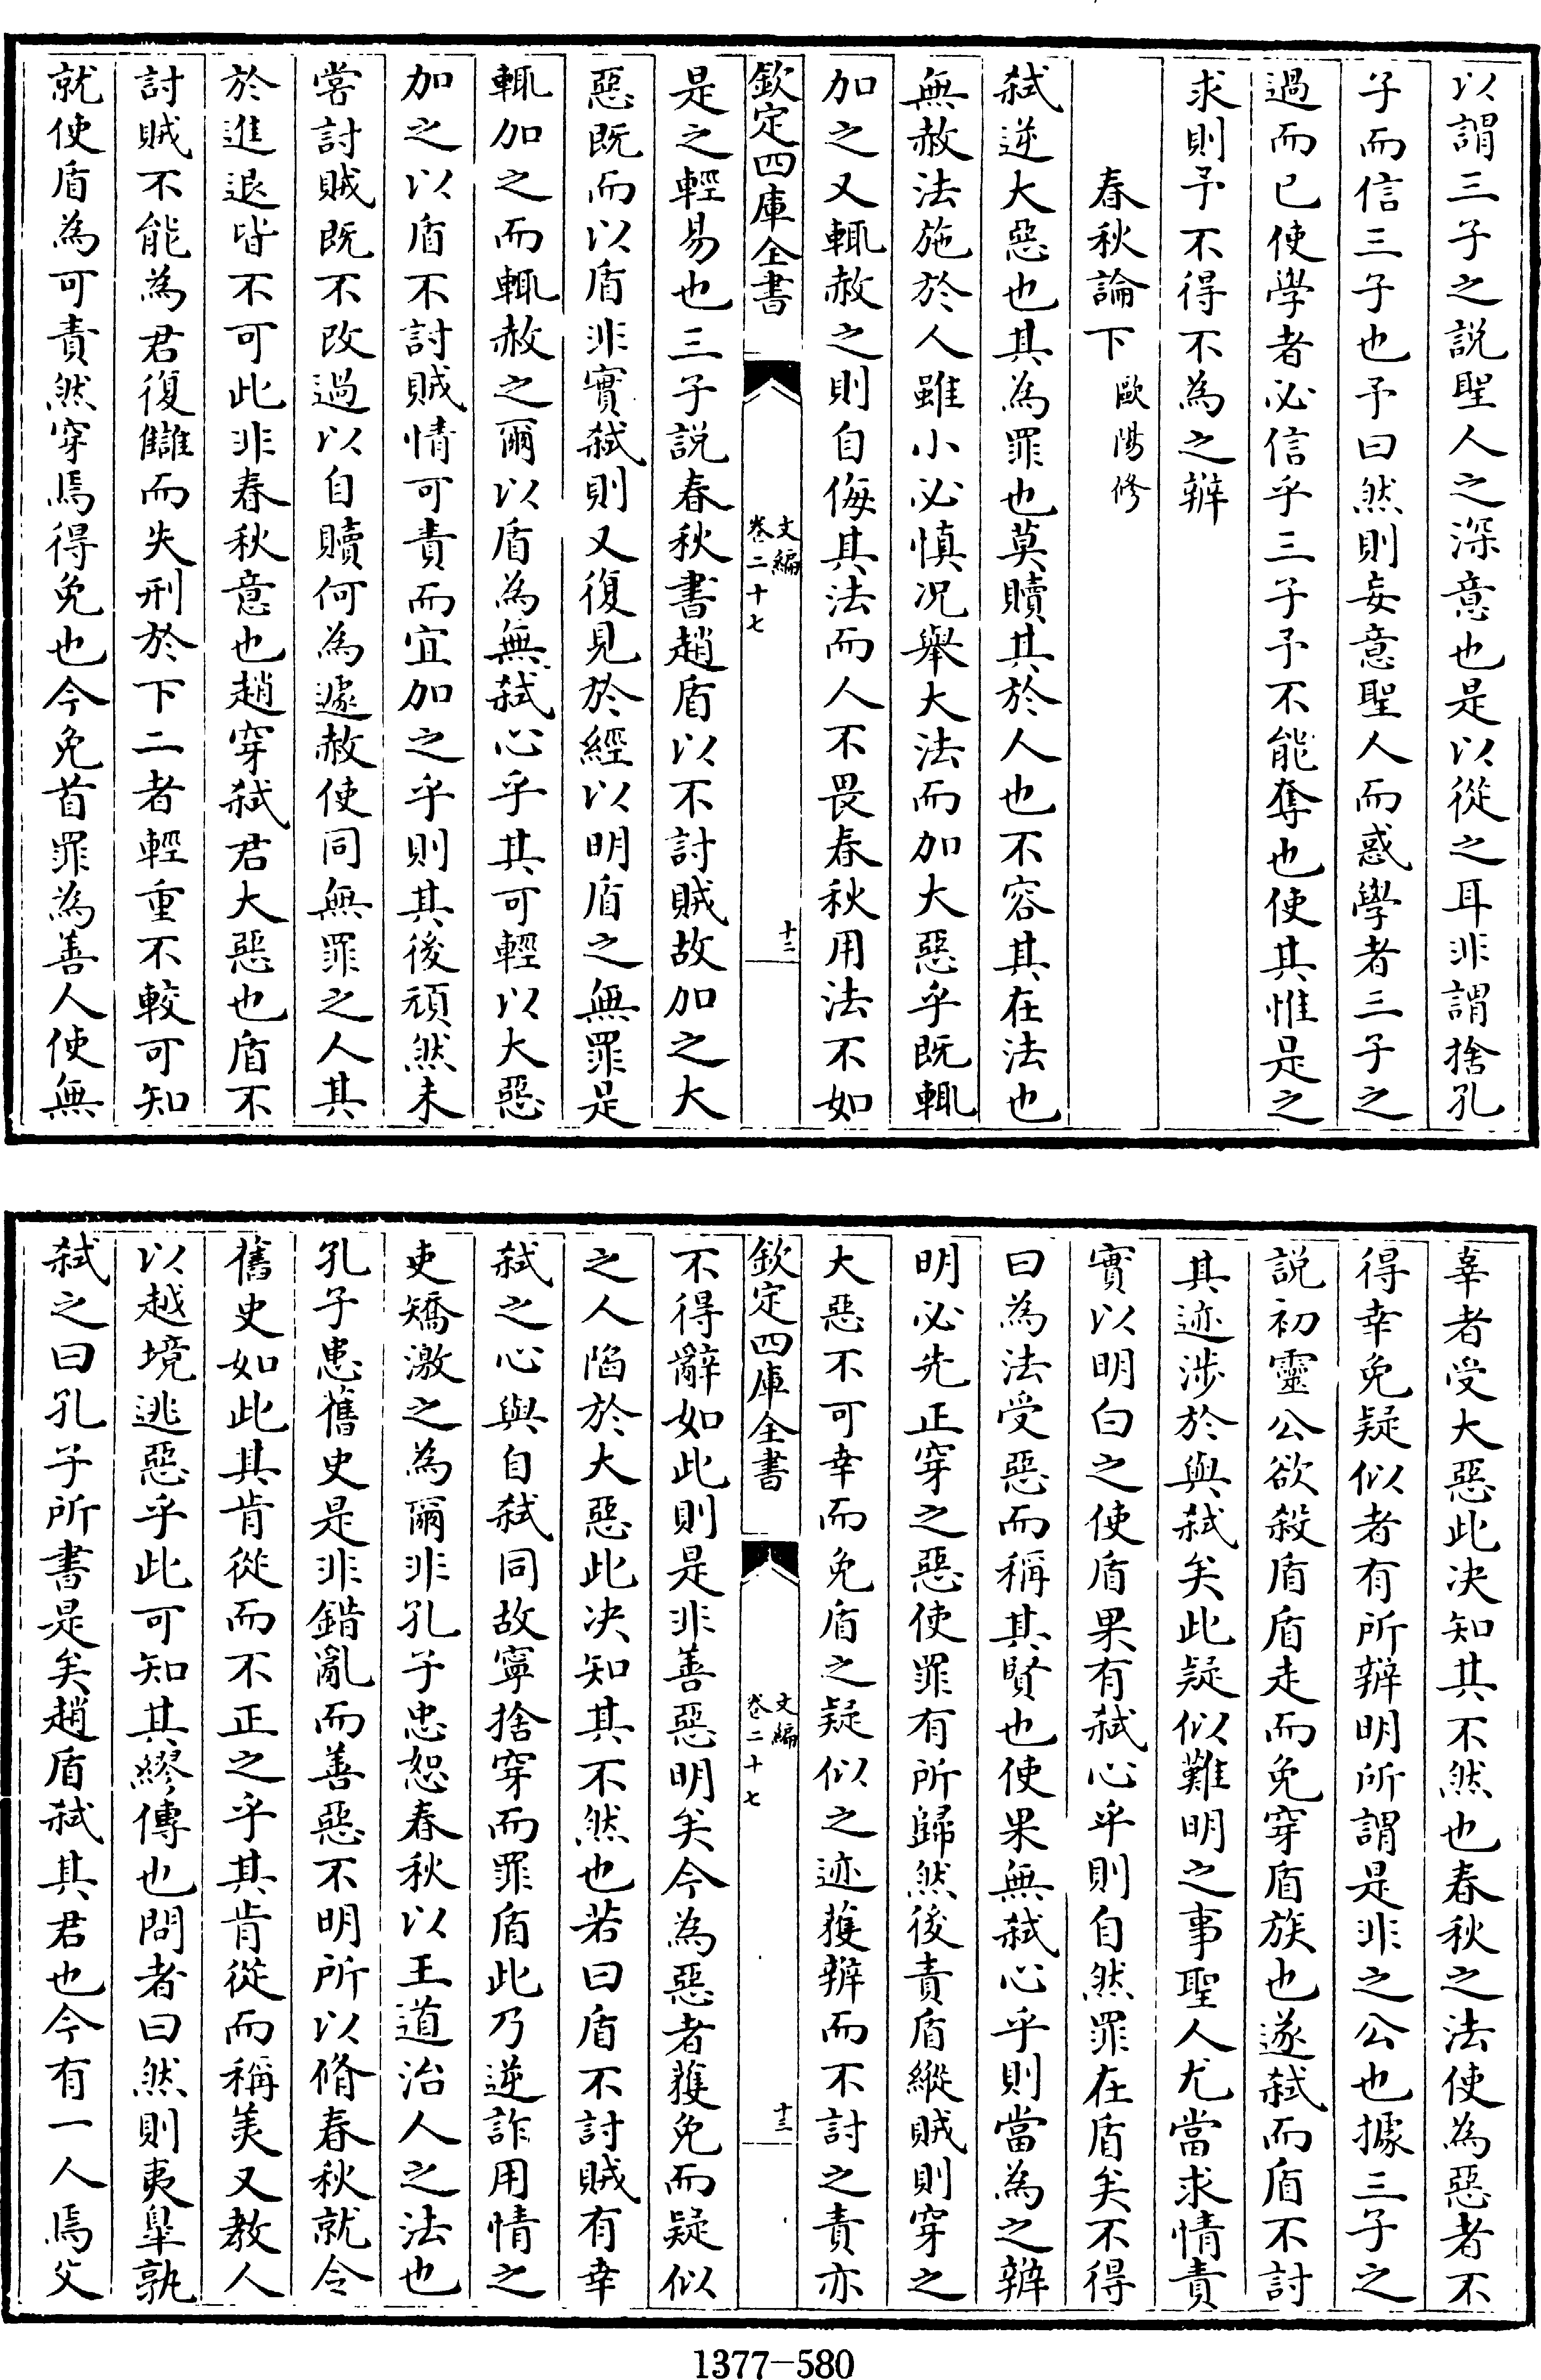 以謂三子之説聖人之深意也是以從之耳非謂捨孔
子而信三子也予曰然則妄意聖人而惑學者三子之
過而已使學者必信乎三子予不能奪也使其惟是之
求則予不得不為之辨
春秋論下 歐陽修
弑逆大惡也其為罪也莫贖其於人也不容其在法也
無赦法施於人雖小必慎况舉大法而加大惡乎既輙
加之又輙赦之則自侮其法而人不畏春秋用法不如
欽定四庫全書 文編 卷二十七 十二
是之輕易也三子説春秋書趙盾以不討賊故加之大
惡既而以盾非實弑則又復見於經以明盾之無罪是
輙加之而輙赦之爾以盾為無弑心乎其可輕以大惡
加之以盾不討賊情可責而宜加之乎則其後頑然未
嘗討賊既不改過以自贖何為遽赦使同無罪之人其
於進退皆不可此非春秋意也趙穿弑君大惡也盾不
討賊不能為君復讎而失刑於下二者輕重不較可知
就使盾為可責然穿焉得免也今免首罪為善人使無
辜者受大惡此决知其不然也春秋之法使為惡者不
得幸免疑似者有所辨明所謂是非之公也據三子之
説初靈公欲殺盾盾走而免穿盾族也遂弑而盾不討
其迹涉於與弑矣此疑似難明之事聖人尤當求情責
實以明白之使盾果有弑心乎則自然罪在盾矣不得
曰為法受惡而稱其賢也使果無弑心乎則當為之辨
明必先正穿之惡使罪有所歸然後責盾縱賊則穿之
大惡不可幸而免盾之疑似之迹獲辨而不討之責亦
欽定四庫全書 文編 卷二十七 十三
不得辭如此則是非善惡明矣今為惡者獲免而疑似
之人陷於大惡此决知其不然也若曰盾不討賊有幸
弑之心與自弑同故寧捨穿而罪盾此乃逆詐用情之
吏矯激之為爾非孔子忠恕春秋以王道治人之法也
孔子患舊史是非錯亂而善惡不明所以脩春秋就令
舊史如此其肯從而不正之乎其肯從而稱美又教人
以越境逃惡乎此可知其繆傳也問者曰然則夷皐孰
弑之曰孔子所書是矣趙盾弑其君也今有一人焉父
1377—580